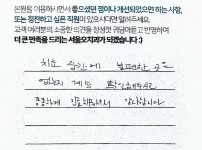 본원을 이용하시면서 좋으셨던 점이나 개선되었으면 하는 사항,
또는 칭찬하고 싶은 직원이 있으시다면 알려주세요.
고객 여러분의 소중한 의견을 경청 및 귀담아듣고 반영하여
더 큰 만족을 드리는 서울모치과가 되겠습니다 :)
치료 중간에 불편한 곳
없는지 계속 확인해주시고
꼼꼼하게 치료해주셔서 감사합니다